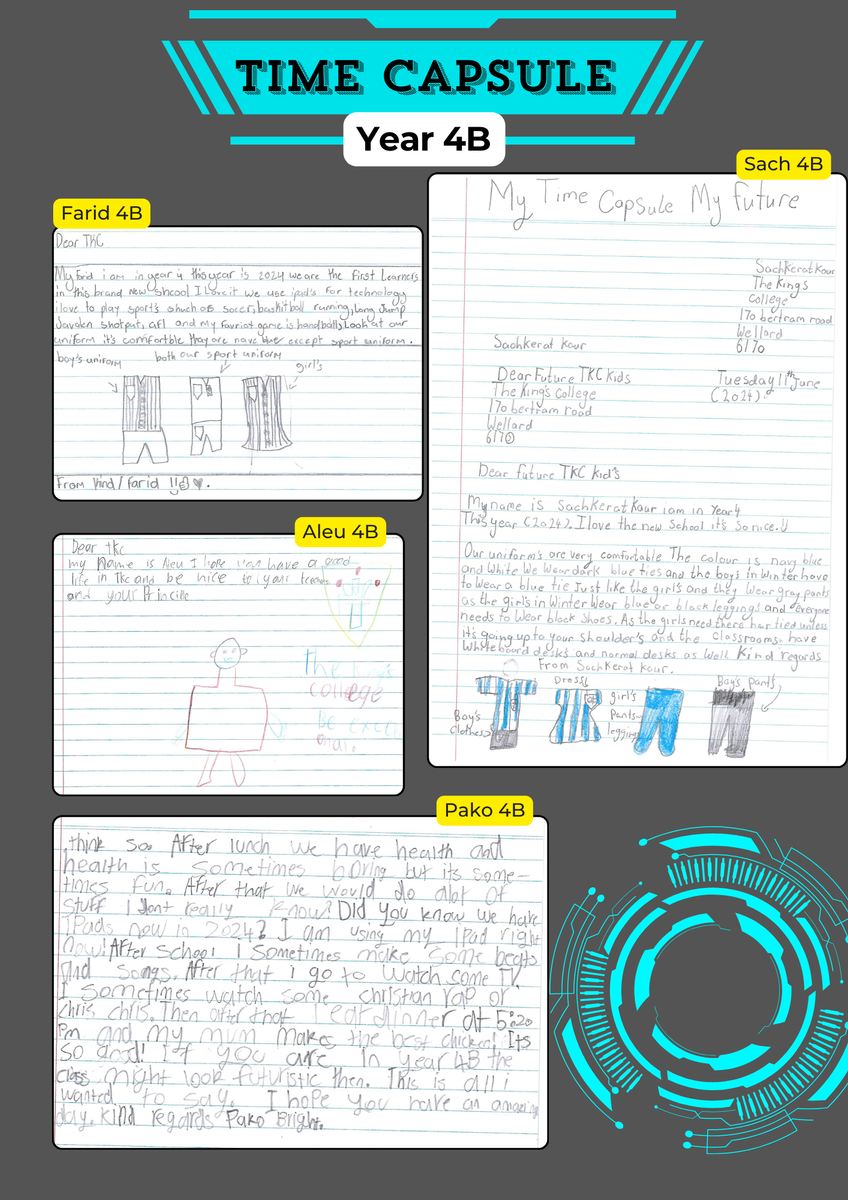 TIME CAPSULE
Year 4B
Farid 4B
Dear TKC
My farid i am in year 4 this year is 2024 we are the first Learners
in this brand new shcool I Love it we use ipad's for technology
i love to play sport's shuch as soccer, baskitball running, Long Jump
Javaden shotput, afl and my favriot game is handball, Look at our
uniform it's comfortble they are nave blue except sport uniform.
boy's uniform
both our sport uniform
girl's
From kind/farid !!
Sach 4B
My Time Capsule My future
Sachkerat kour
The King's
College
170 bertram road
Wellard
6170
Sachkerat kour
Dear Future TKC kids
The King's College
170 bertram road
Wellard
6170
Tuesday 11th June
(2024).
Dear future TKC kid's
My name is Sachkerat kour i am in Year 4
This year (2024). I love the new School it's so nice.
Our uniform's are very comfortable The colour is navy blue
and white We Wear dark blue ties and the boys in Winter have
to Wear a blue tie Just like the girl's and they Wear gray pants
as the girl's in Winter Wear blue or black leggings and everyone
needs to Wear black shoes. As the girls need there hair tied unless
it's going up to your shoulder's and the classrooms have
Whiteboard desks and normal desks as Well Kind regards
From Sachkerat kour.
Boy's
clothes
Dress
girl's
Pants
legging
Boy's pants
Aleu 4B
Dear tkc
my name is Aleu I hope you have a good
life in tkc and be nice to your
and your Princille
the kings
college
Be exce
onal.
Pako 4B
think so. After lunch we have health and
health is sometimes boring but its some-
times fun. After that we would do alot of
stuff I dont really know! Did you know we have
iPads now in 2024? I am using my iPad right
now! After school I sometimes make some beats
and songs. After that i go to watch some TV.
I sometimes watch some christian rap or
chris chris. Then after that I eat dinner at 5:20
Pm and my mum makes the best chicken! Its
so good! if you are in year 4B the
class might look futuristic then. This is all i
wanted to say. I hope you have an amazing
day. kind regards Pako Bright.